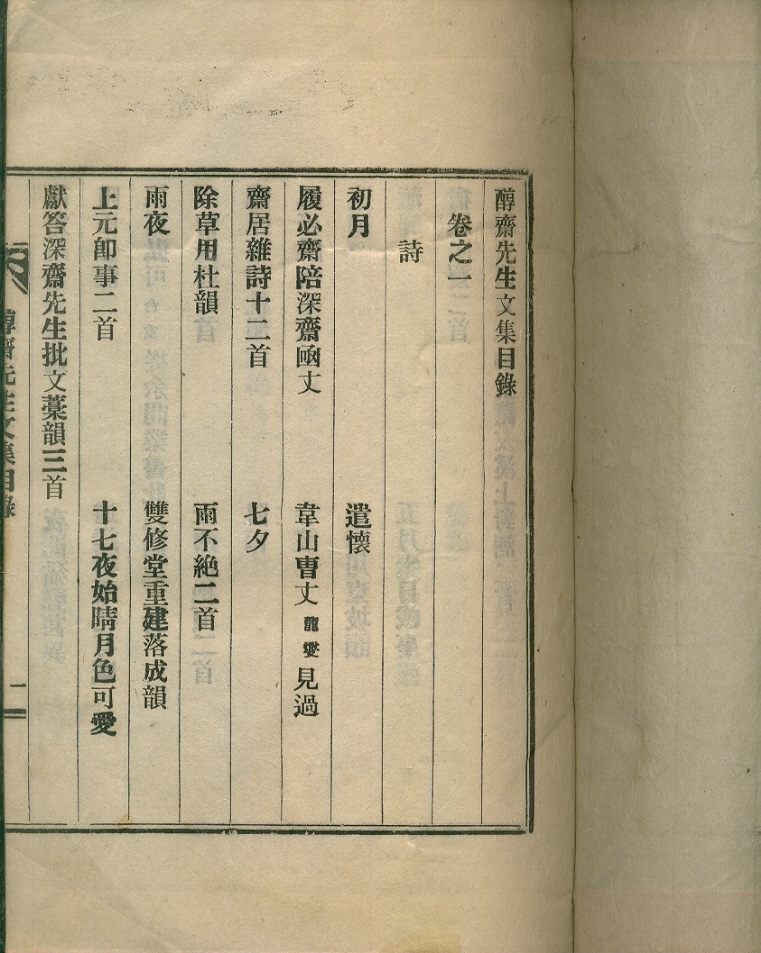 醇齋先生文集目錄
卷之一
詩
初月 遣懷
履必齋陪深齋函丈 韋山曺丈龍燮見過
齋居雜詩十二首 七夕
除草用杜韻 雨不絶二首
雨夜 雙修堂重建落成韻
上元卽事二首 十七夜始晴月色可愛
獻答深齋先生批文藁韻三首
醇齋先生文集目錄
一